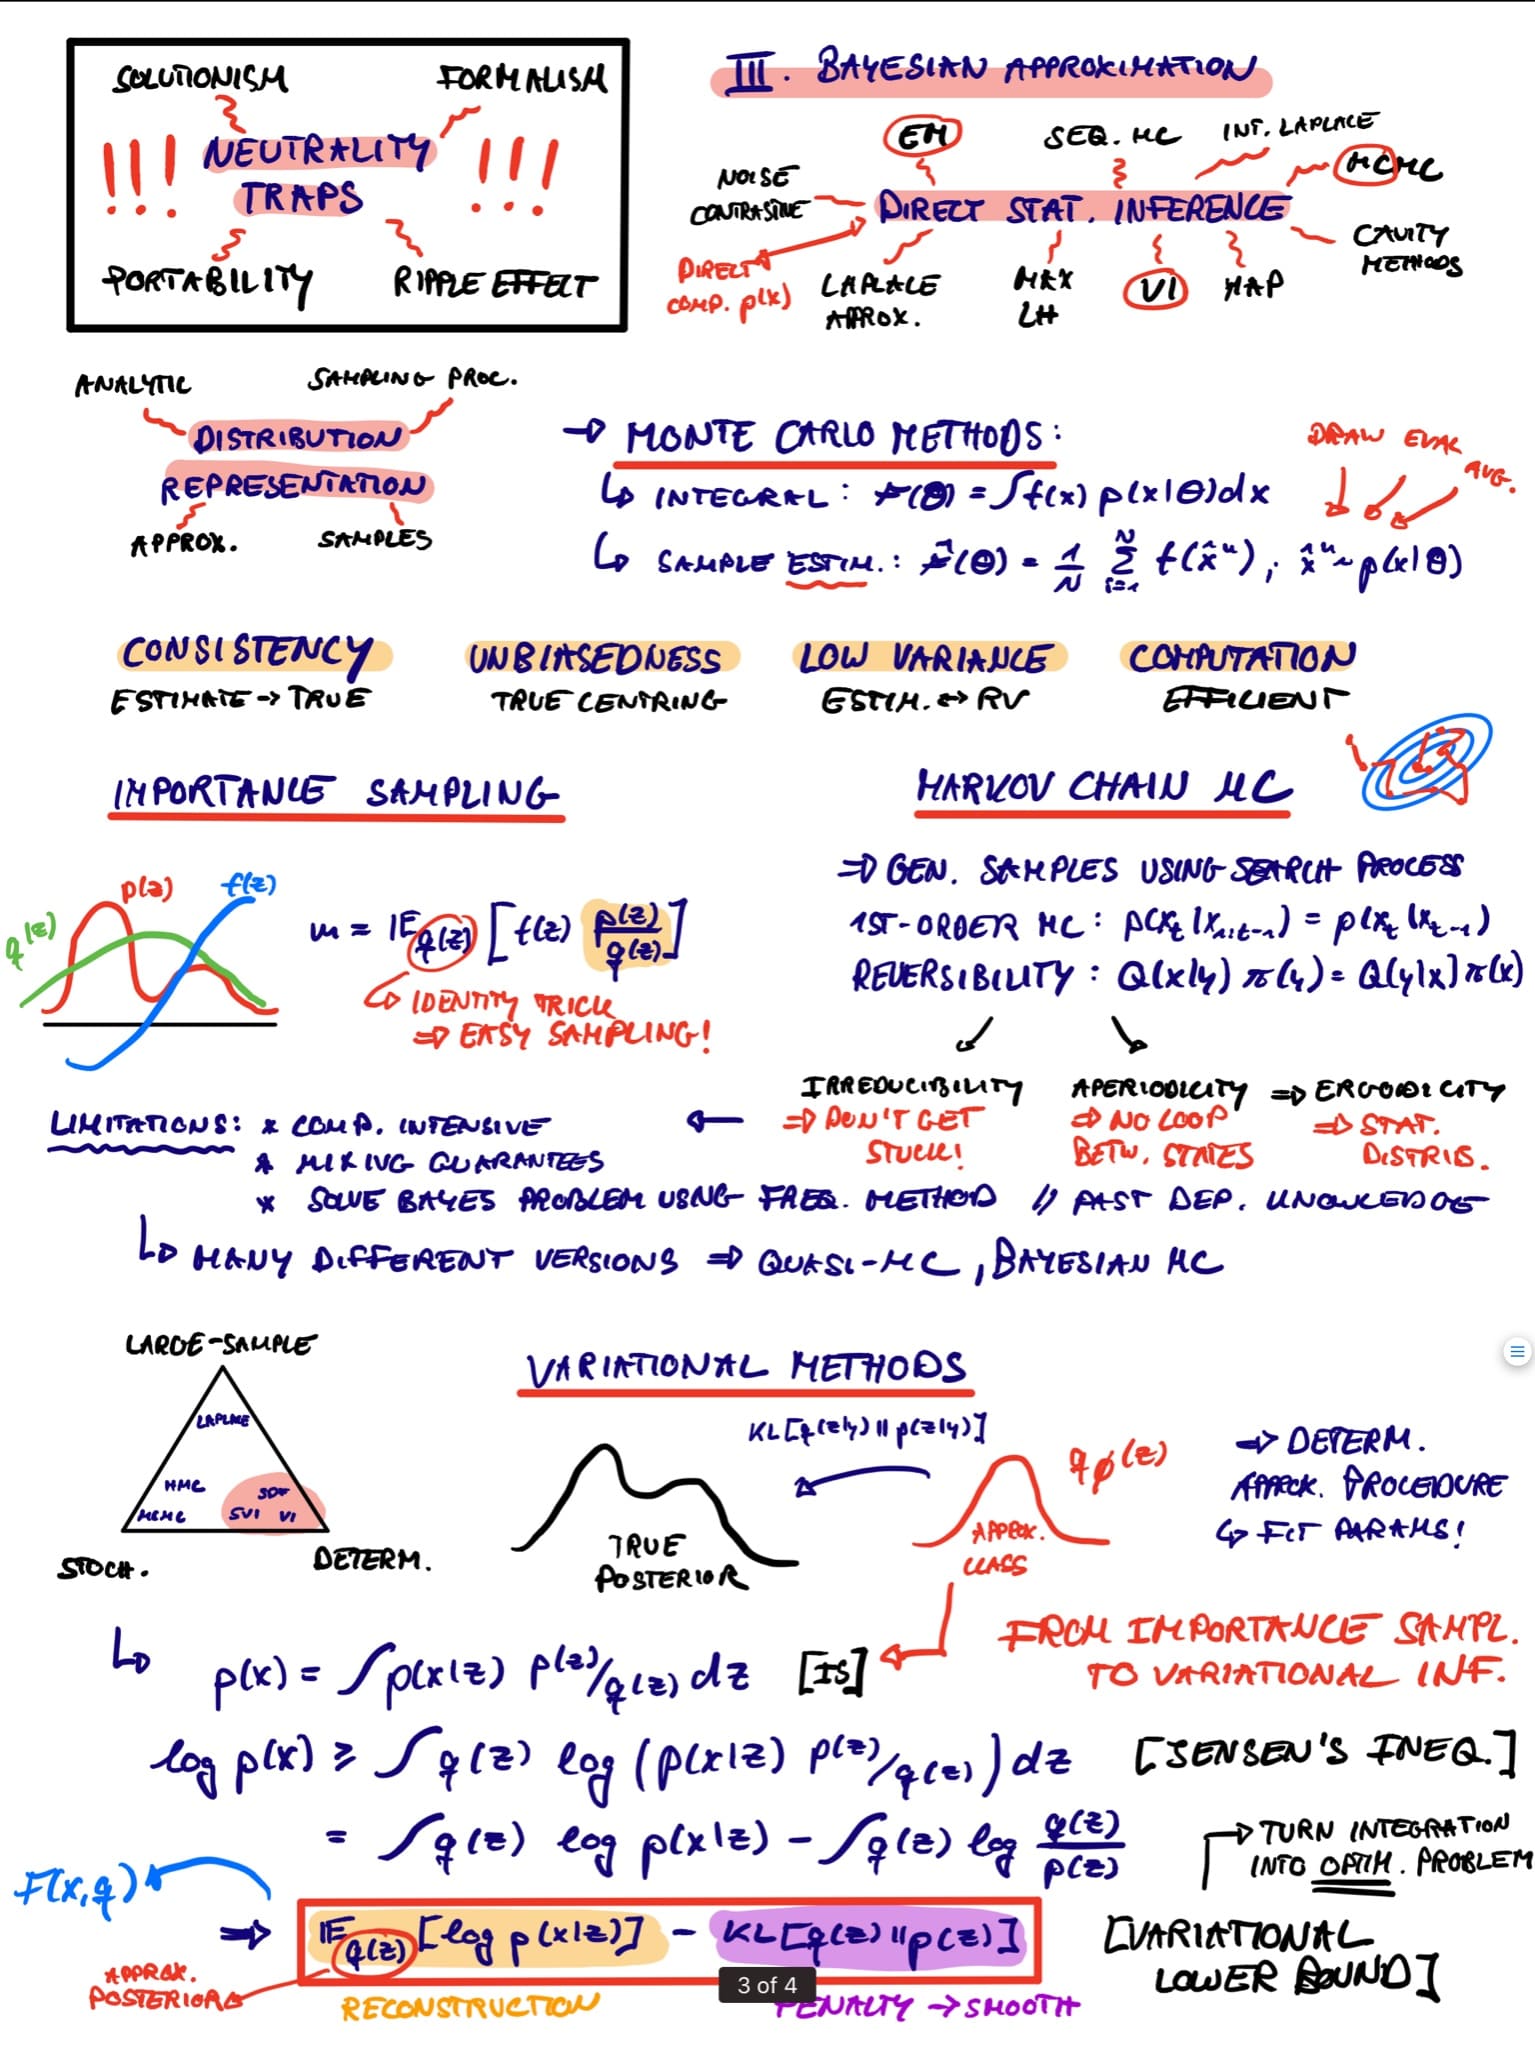 SOLUTIONISM
FORMALISM
!!! NEUTRALITY !!!
TRAPS
PORTABILITY
RIPPLE EFFECT
III. BAYESIAN APPROXIMATION
EM
SEQ. MC
INT. LAPLACE
MCMC
NOISE
CONTRASTIVE
DIRECT STAT. INFERENCE
CAVITY
METHODS
DIRECT
COMP. p(x)
LAPLACE
APPROX.
MAX
LH
VI
MAP
ANALYTIC
SAMPLING PROC.
DISTRIBUTION
REPRESENTATION
APPROX.
SAMPLES
→ MONTE CARLO METHODS:
↳ INTEGRAL: F(θ) = ∫f(x) p(x|θ)dx
↳ SAMPLE ESTIM.: F̂(θ) = 1/N Σ_{i=1}^{N} f(x̂ⁿ), x̂ⁿ ~ p(x|θ)
DRAW EVAL AVG.
CONSISTENCY
ESTIMATE → TRUE
UNBIASEDNESS
TRUE CENTRING
LOW VARIANCE
ESTIM. ↔ RV
COMPUTATION
EFFICIENT
IMPORTANCE SAMPLING
q(z)
p(z)
f(z)
m = 𝔼_{q(z)} [f(z) p(z)/q(z)]
↳ IDENTITY TRICK
⇒ EASY SAMPLING!
MARKOV CHAIN MC
⇒ GEN. SAMPLES USING SEARCH PROCESS
1ST-ORDER MC: p(x_t|x_{1:t-1}) = p(x_t|x_{t-1})
REVERSIBILITY: Q(x|y) π(y) = Q(y|x) π(x)
IRREDUCIBILITY
⇒ DON'T GET
STUCK!
APERIODICITY
⇒ NO LOOP
BETW. STATES
⇒ ERGODICITY
⇒ STAT.
DISTRIB.
LIMITATIONS: * COMP. INTENSIVE
* MIXING GUARANTEES
* SOLVE BAYES PROBLEM USING FREQ. METHOD // PAST DEP. KNOWLEDGE
↳ MANY DIFFERENT VERSIONS ⇒ QUASI-MC, BAYESIAN MC
LARGE-SAMPLE
LAPLACE
HMC
MCMC
SVI
VI
STOCH.
DETERM.
VARIATIONAL METHODS
KL[q(z|y) || p(z|y)]
TRUE
POSTERIOR
APPROX.
CLASS
qϕ(z)
⇒ DETERM.
APPROX. PROCEDURE
↳ FIT PARAMS!
FROM IMPORTANCE SAMPL.
TO VARIATIONAL INF.
↳ p(x) = ∫p(x|z) p(z)/q(z) dz [IS]
log p(x) ≥ ∫q(z) log (p(x|z) p(z)/q(z)) dz [JENSEN'S INEQ.]
= ∫q(z) log p(x|z) - ∫q(z) log q(z)/p(z)
→ TURN INTEGRATION
INTO OPTIM. PROBLEM
F(x,q)
⇒ 𝔼_{q(z)} [log p(x|z)] - KL[q(z) || p(z)]
[VARIATIONAL
LOWER BOUND]
APPROX.
POSTERIOR
RECONSTRUCTION
PENALTY → SMOOTH
3 of 4